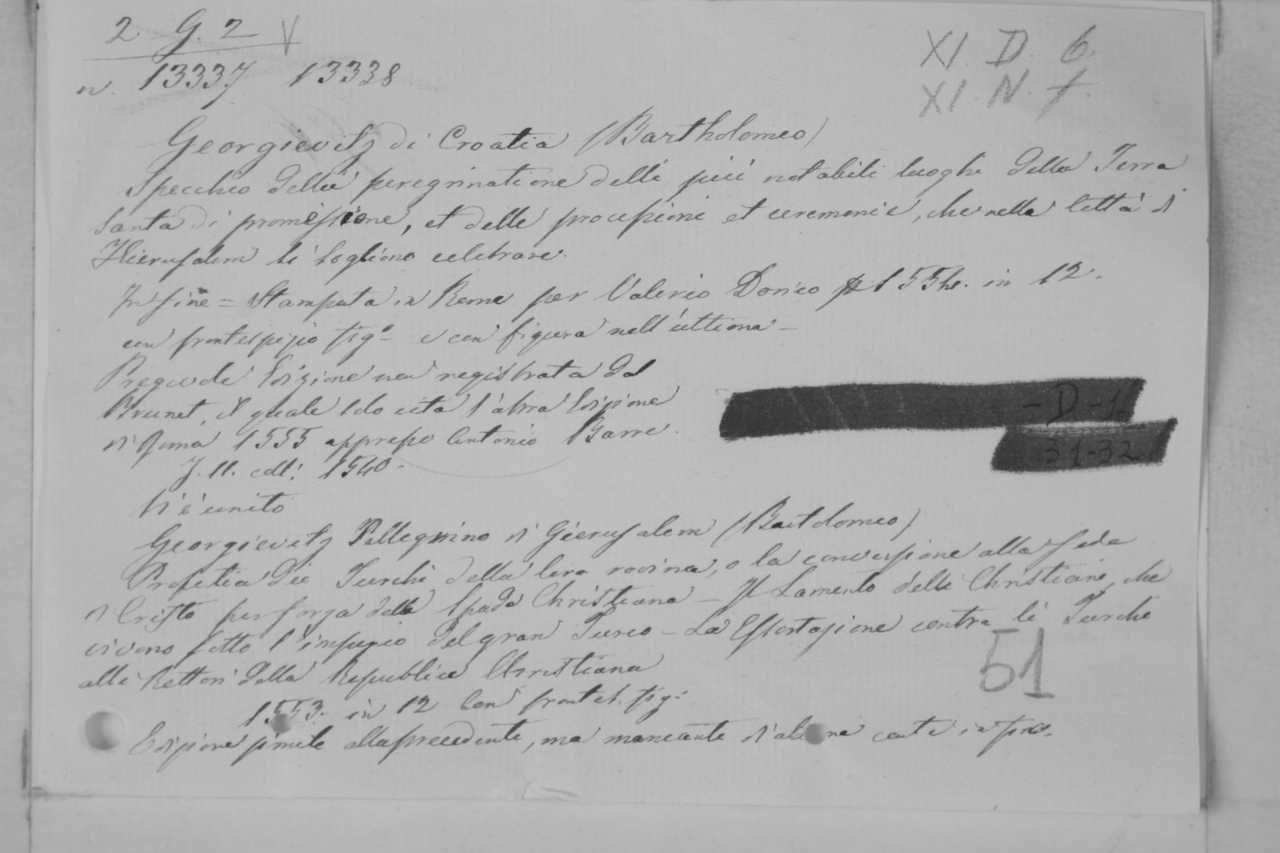 2. G. 2 V
XI. D. 6
n. 13337 13338
XI. N. f.
Georgievitz di Croatia (Bartholomeo)
Specchio della peregrinatione delli più notabili luoghi della Terra
Santa di promessione, et delle processioni et ceremonie, che nella Città di
Hierusalem si sogliono celebrare.
In fine = Stampata in Roma per Valerio Dorico in 12.
con frontespizio fig.o e con figura nell'ultima -
Pregevole Edizione non registrata da
Brunet, il quale cita l'altra Edizione
di Roma 1555 appresso Antonio Barre.
- D - 1
31-32
1540.
Vi è unito
Georgievitz Pellegrino di Gierusalem (Bartolomeo)
Profetia dei Turchi della loro rovina, o la conversione alla fede
di Cristo per forza della Spada Christiana - Il Lamento delli Christiani, che
vivono sotto l'imperio del gran Turco - La Essortazione contra li Turchi
alli Rettori della Republica Christiana
51
1553. in 12 con frontes. fig.
Edizione simile alla precedente, ma mancante d'alcune carte in fine.